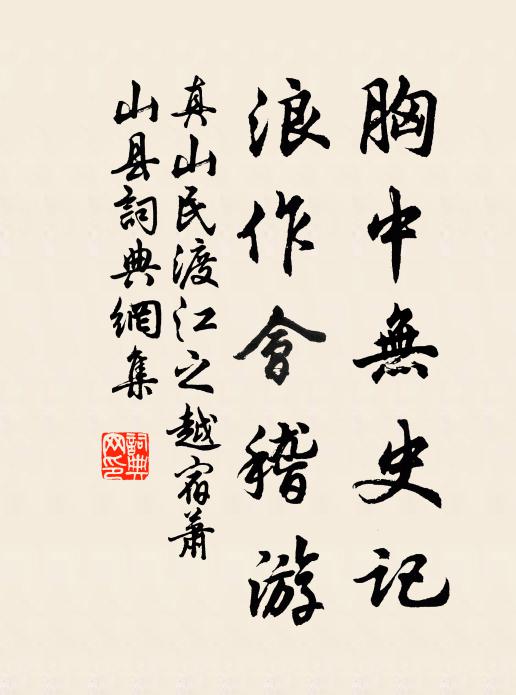 胸中無史記
浪作會稽游
真山民渡江之越宿蕭
山县詞典網集
詞典
网印